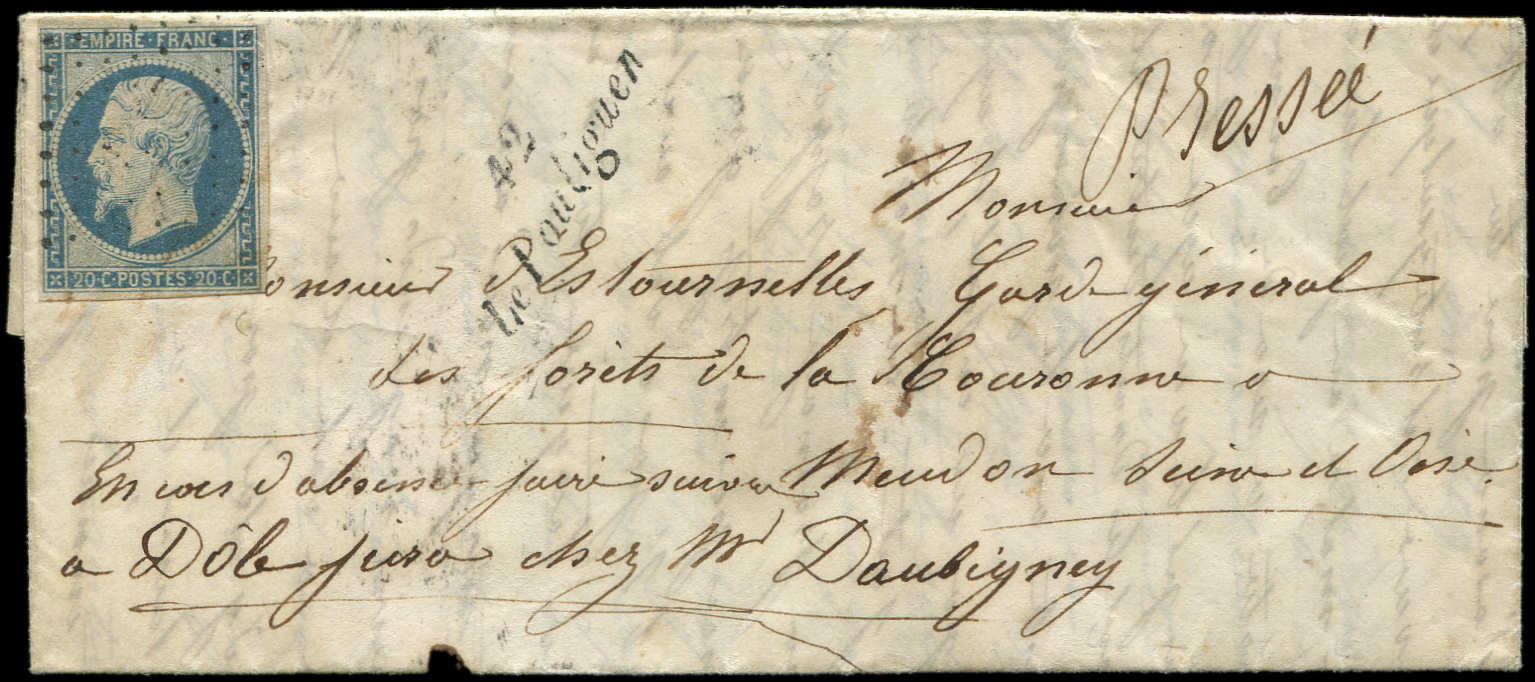 EMPIRE·FRANC·
20·C·POSTES·20·C·
42
Le Pouliguen
Pressée
Monsieur
Monsieur d'Estournelles Garde général
des forêts de la Couronne a
Meudon Seine et Oise.
En cas d'absence faire suivre
a Dôle Jura chez Mr Daubigney